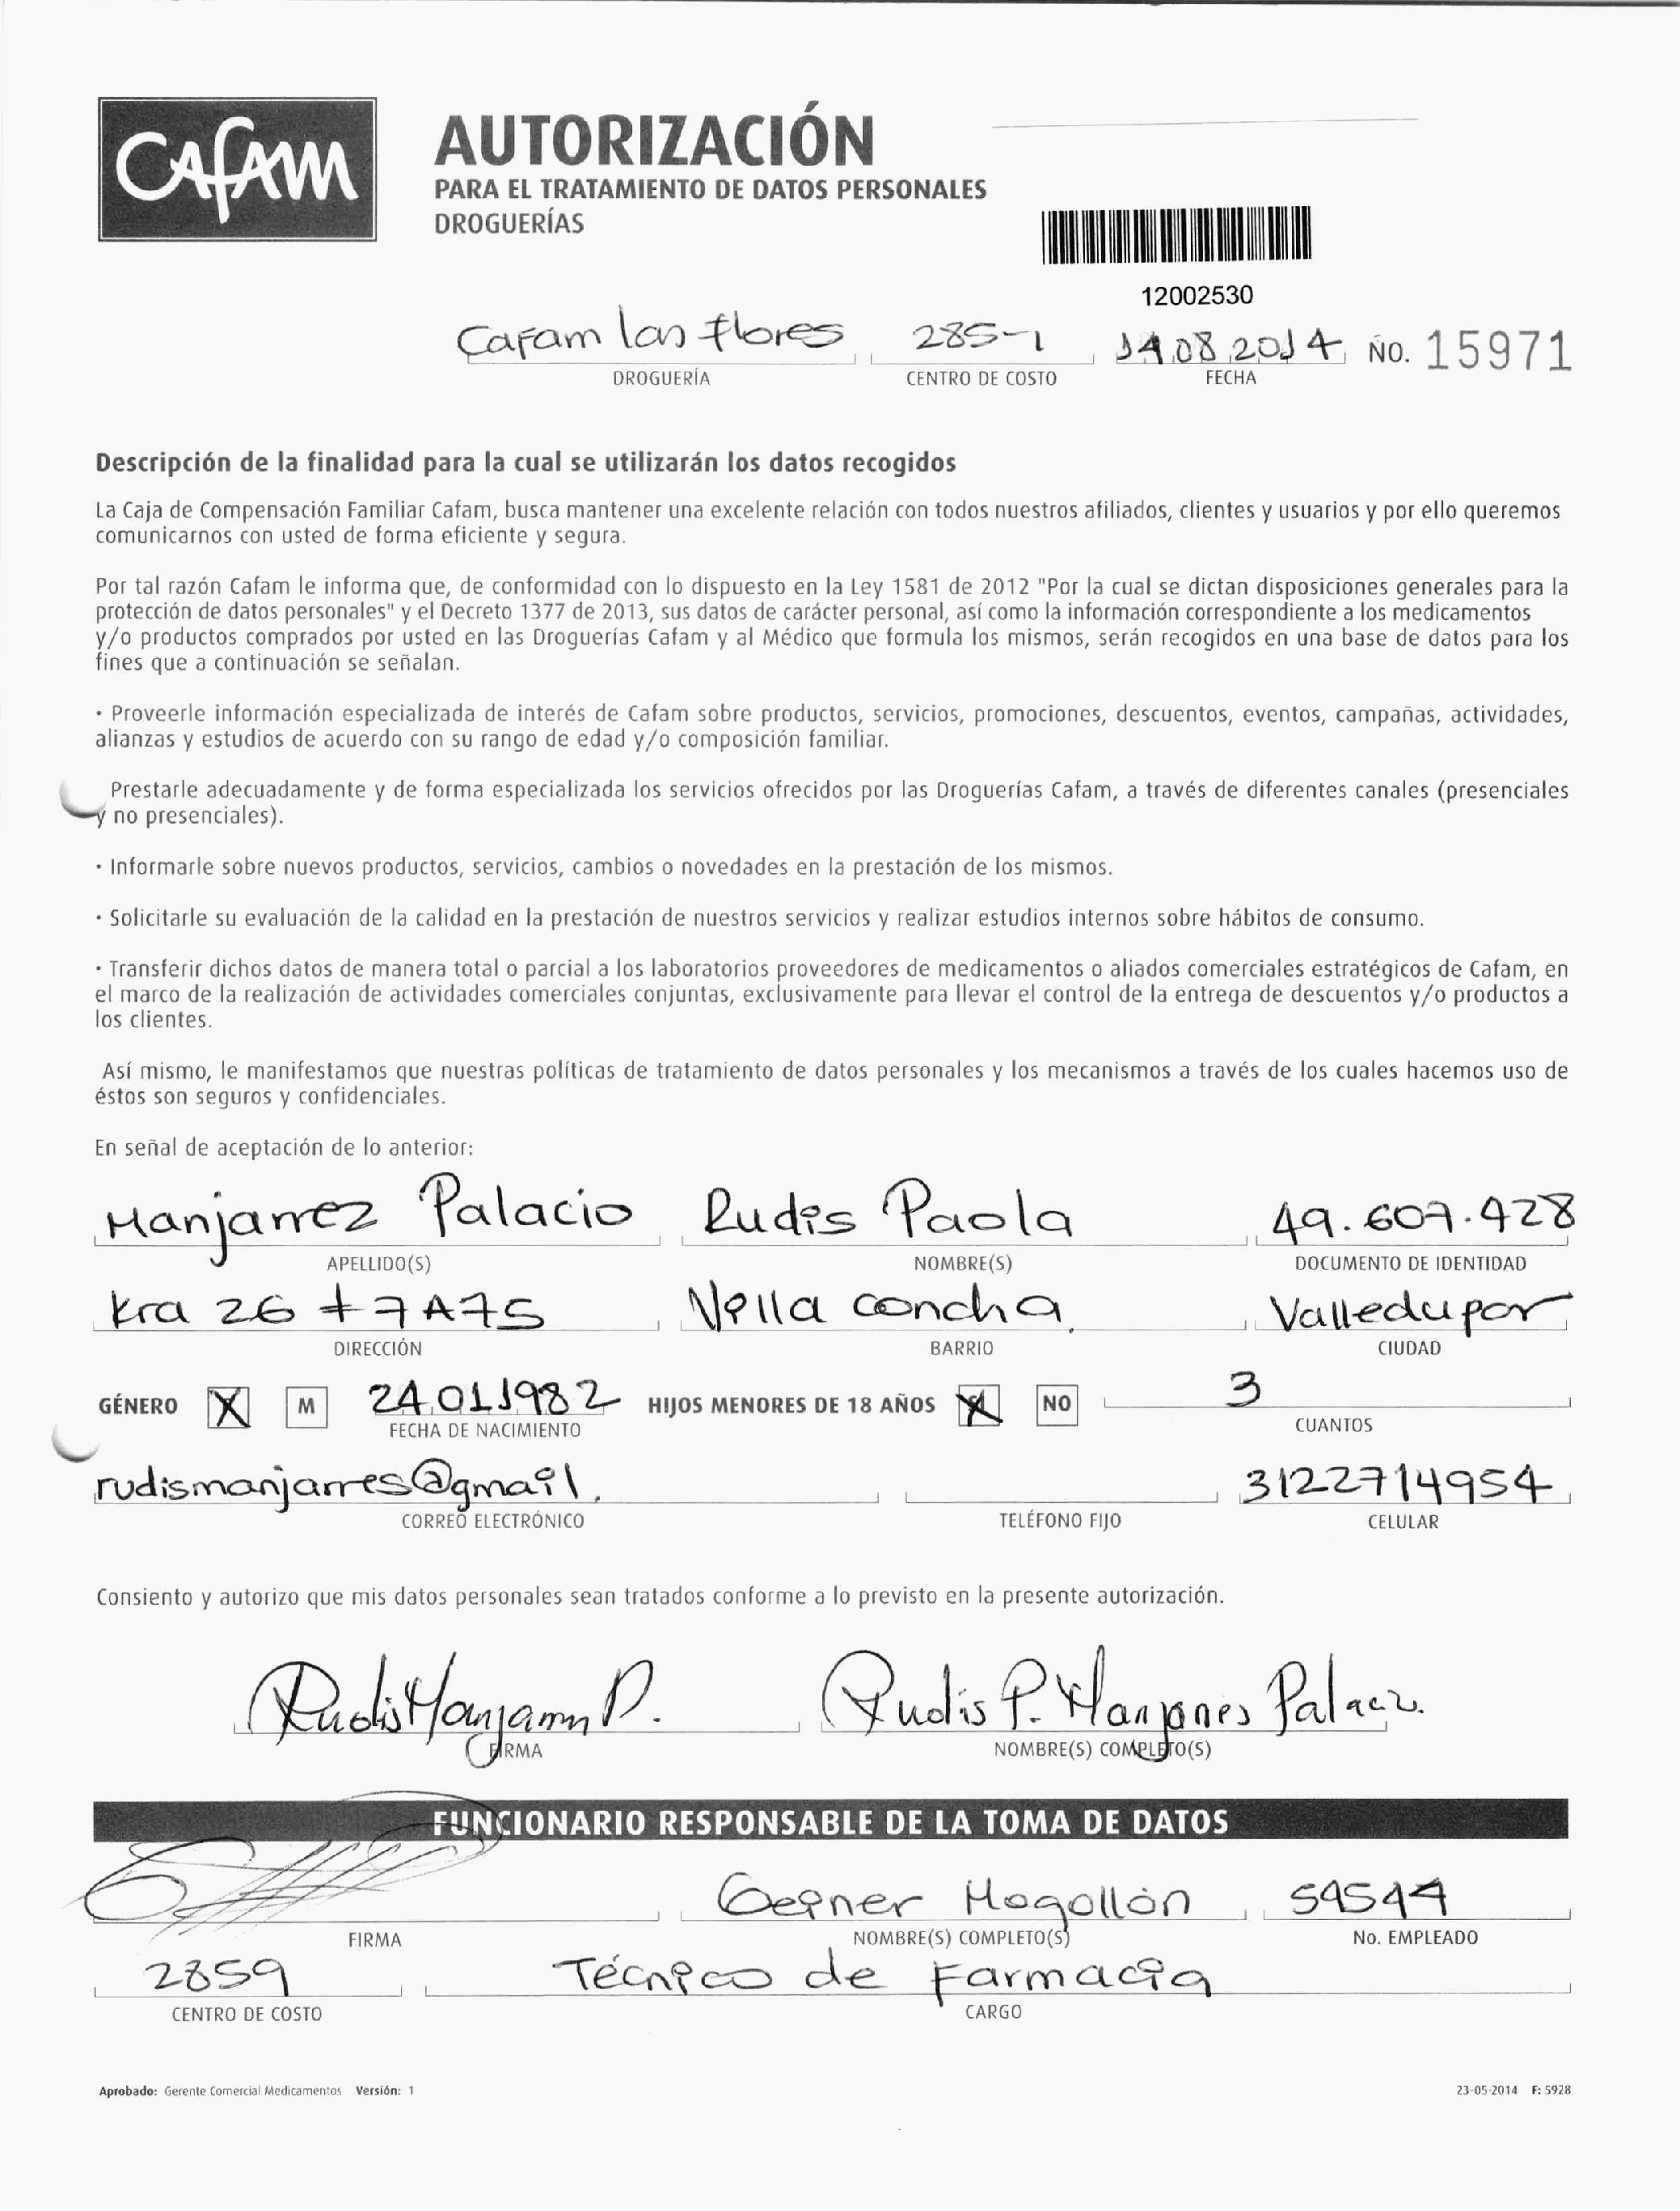 CAFAM
AUTORIZACIÓN
PARA EL TRATAMIENTO DE DATOS PERSONALES
DROGUERÍAS
12002530
Cafam las flores 285-1 14.08.2014 NO. 15971
DROGUERÍA CENTRO DE COSTO FECHA
Descripción de la finalidad para la cual se utilizarán los datos recogidos
La Caja de Compensación Familiar Cafam, busca mantener una excelente relación con todos nuestros afiliados, clientes y usuarios y por ello queremos
comunicarnos con usted de forma eficiente y segura.
Por tal razón Cafam le informa que, de conformidad con lo dispuesto en la Ley 1581 de 2012 "Por la cual se dictan disposiciones generales para la
protección de datos personales" y el Decreto 1377 de 2013, sus datos de carácter personal, así como la información correspondiente a los medicamentos
y/o productos comprados por usted en las Droguerías Cafam y al Médico que formula los mismos, serán recogidos en una base de datos para los
fines que a continuación se señalan.
· Proveerle información especializada de interés de Cafam sobre productos, servicios, promociones, descuentos, eventos, campañas, actividades,
alianzas y estudios de acuerdo con su rango de edad y/o composición familiar.
Prestarle adecuadamente y de forma especializada los servicios ofrecidos por las Droguerías Cafam, a través de diferentes canales (presenciales
y no presenciales).
· Informarle sobre nuevos productos, servicios, cambios o novedades en la prestación de los mismos.
· Solicitarle su evaluación de la calidad en la prestación de nuestros servicios y realizar estudios internos sobre hábitos de consumo.
· Transferir dichos datos de manera total o parcial a los laboratorios proveedores de medicamentos o aliados comerciales estratégicos de Cafam, en
el marco de la realización de actividades comerciales conjuntas, exclusivamente para llevar el control de la entrega de descuentos y/o productos a
los clientes.
Así mismo, le manifestamos que nuestras políticas de tratamiento de datos personales y los mecanismos a través de los cuales hacemos uso de
éstos son seguros y confidenciales.
En señal de aceptación de lo anterior:
Manjarrez Palacio Rudis Paola 49.607.428
APELLIDO(S) NOMBRE(S) DOCUMENTO DE IDENTIDAD
Kra 26 # 7A75 Villa concha. Valledupar
DIRECCIÓN BARRIO CIUDAD
GÉNERO X M 24.01.1982 HIJOS MENORES DE 18 AÑOS X NO 3
FECHA DE NACIMIENTO CUANTOS
rudismanjarres@gmail. 3122714954
CORREO ELECTRÓNICO TELÉFONO FIJO CELULAR
Consiento y autorizo que mis datos personales sean tratados conforme a lo previsto en la presente autorización.
Rudis Manjarres P. Rudis P. Manjarres Palacio
FIRMA NOMBRE(S) COMPLETO(S)
FUNCIONARIO RESPONSABLE DE LA TOMA DE DATOS
Geiner Mogollón 54544
FIRMA NOMBRE(S) COMPLETO(S) No. EMPLEADO
2859 Técnico de Farmacia
CENTRO DE COSTO CARGO
Aprobado: Gerente Comercial Medicamentos Versión: 1 23-05-2014 F: 5928